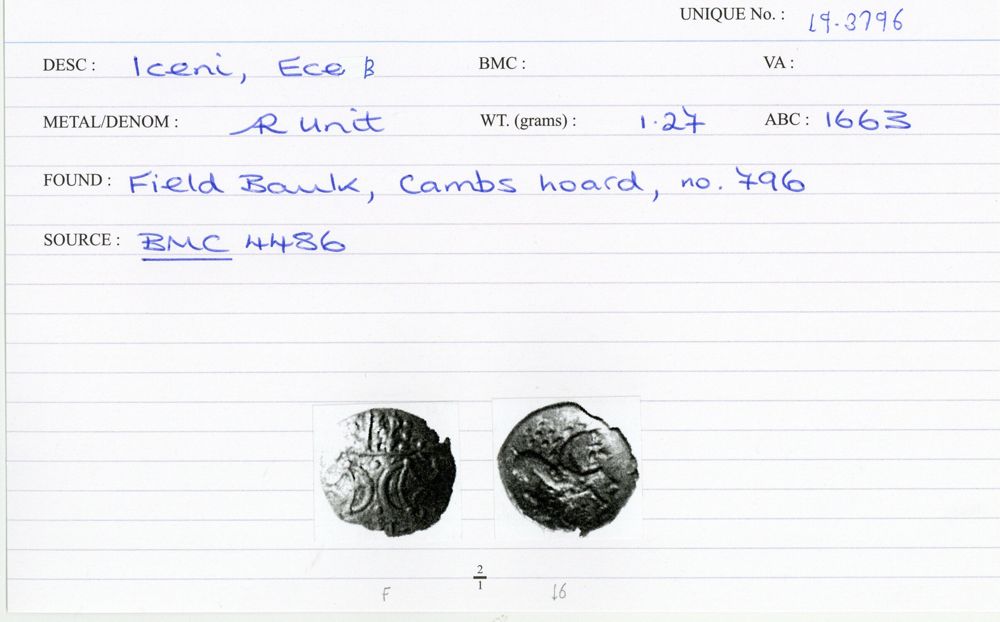 UNIQUE No. : 19.3796
DESC : Iceni, Ece B BMC : VA :
METAL/DENOM : AR unit WT. (grams) : 1.27 ABC : 1663
FOUND : Field Baulk, Cambs hoard, no. 796
SOURCE : BMC 4486
2
1
F 16